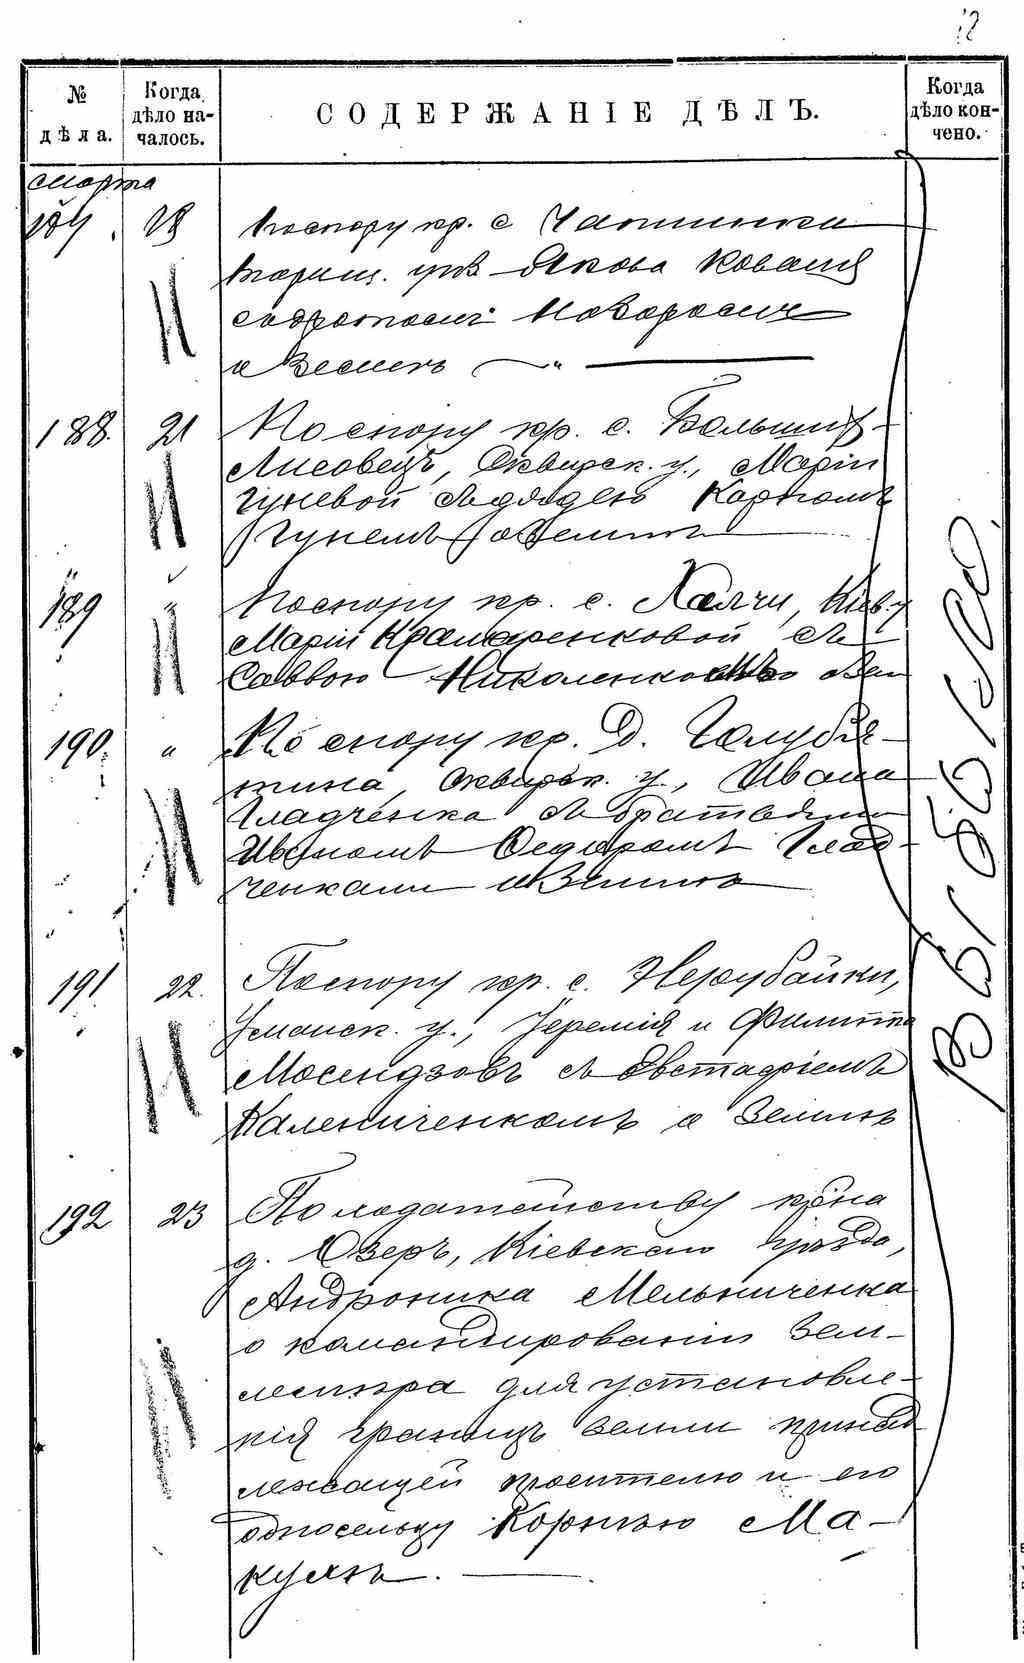 12
№ дѣла.
Когда дѣло на-чалось.
СОДЕРЖАНІЕ ДѢЛЪ.
Когда дѣло кон-чено.
марта
187. 18
По спору кр. с.
Якова Коваля
о Землѣ — " —
188. 21 По спору кр. с. Большихъ
Лисовецъ, Сквирск. у., Маріи
Гуневой съ дядею Карпомъ
Гунемъ о Землѣ
189 " По спору кр. с. Халчи, Кіев. у
Маріи Крамаренковой съ
Саввою Николенко о Зем
190. " По спору кр. д. Голубя-
тина, Сквирск. у., Ивана
Гладченка съ братьями
Иваномъ Федоромъ Глад-
ченками о Землѣ
191 22. По спору кр. с. Нерубайки,
Уманск. у., Іеремія и Филиппа
Мосендзовъ съ Евстафіемъ
Калениченкомъ о Землѣ
192 23 По ходатайству кр-на
д. Озеръ, Кіевскаго уѣзда,
Андроника Мельниченка
о командированіи Зем-
лемѣра для установле-
нія границъ земли принад-
лежащей просителю и его
односельцу Корнѣю Ма-
кухѣ. —